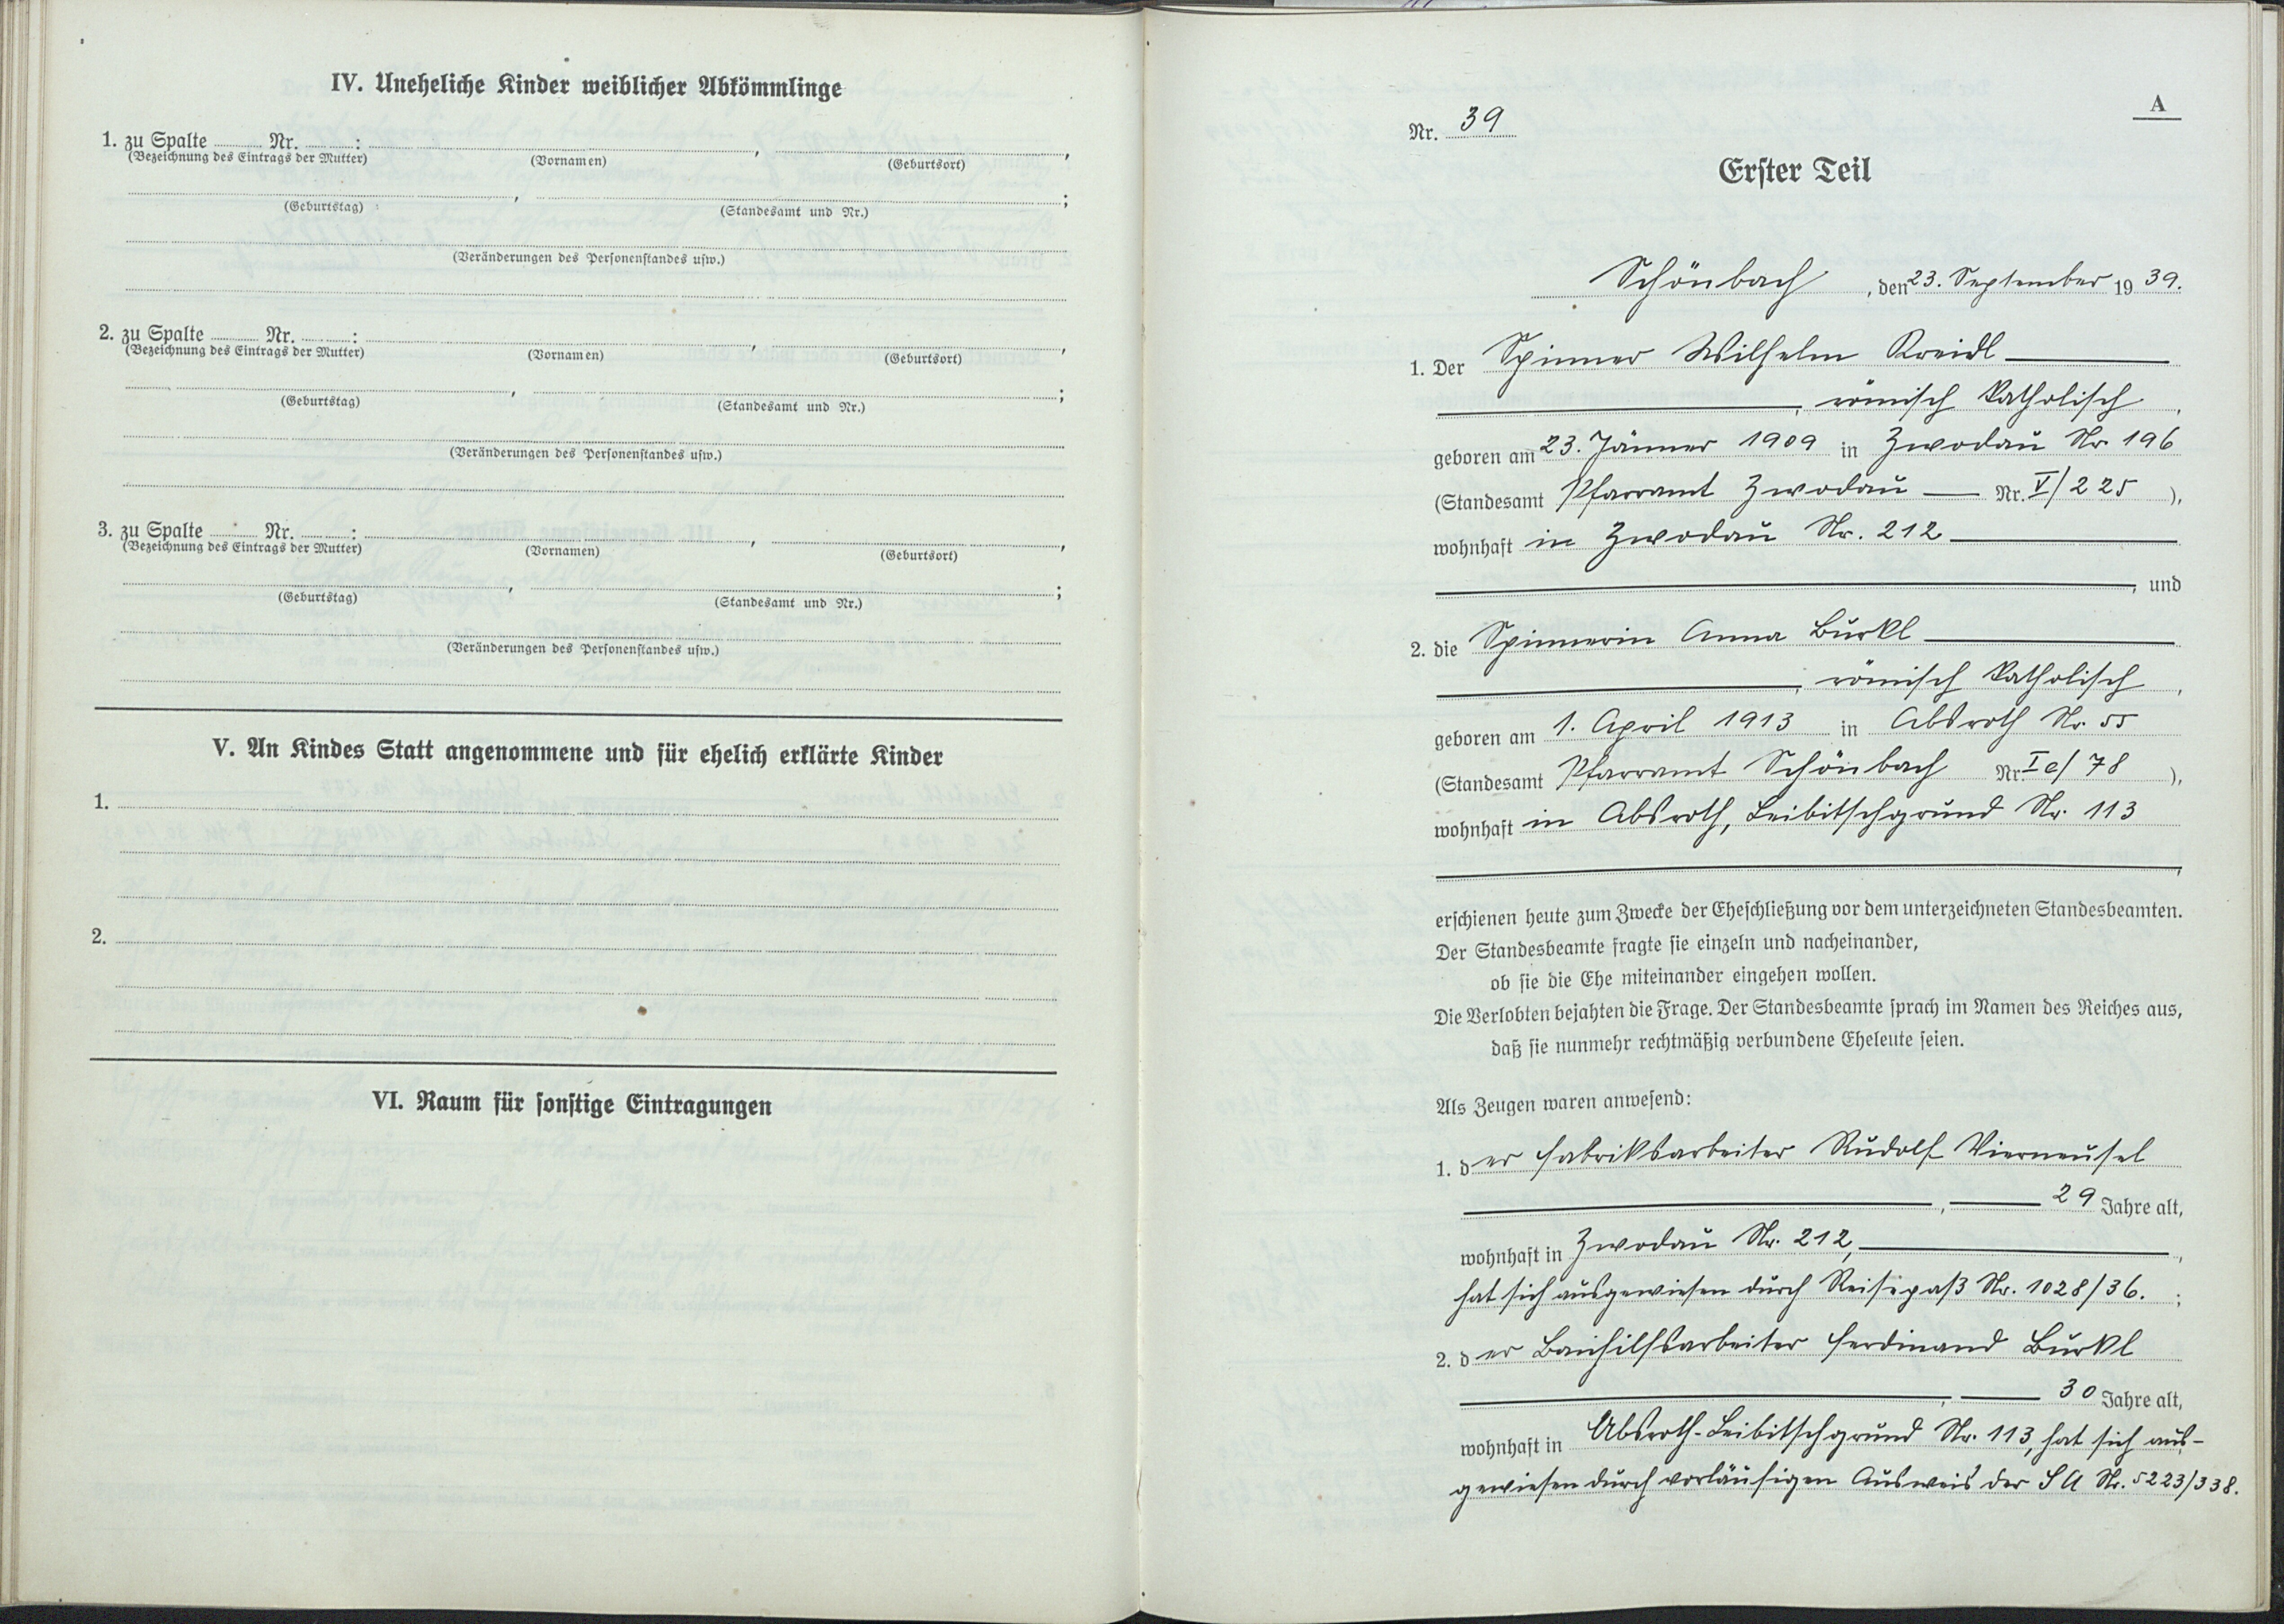 IV. Uneheliche Kinder weiblicher Abkömmlinge
1. zu Spalte Nr. : , ,
(Bezeichnung des Eintrags der Mutter) (Vornamen) (Geburtsort)
, ;
(Geburtstag) (Standesamt und Nr.)
(Veränderungen des Personenstandes usw.)
2. zu Spalte Nr. : , ,
(Bezeichnung des Eintrags der Mutter) (Vornamen) (Geburtsort)
, ;
(Geburtstag) (Standesamt und Nr.)
(Veränderungen des Personenstandes usw.)
3. zu Spalte Nr. : , ,
(Bezeichnung des Eintrags der Mutter) (Vornamen) (Geburtsort)
, ;
(Geburtstag) (Standesamt und Nr.)
(Veränderungen des Personenstandes usw.)
V. An Kindes Statt angenommene und für ehelich erklärte Kinder
1.
2.
VI. Raum für sonstige Eintragungen
A
Nr. 39
Erster Teil
Schönbach, den 23. September 1939.
1. Der Spinner Wilhelm Kreidl
, römisch katholisch,
geboren am 23. Jänner 1909 in Zwodau Nr. 196
(Standesamt Pfarramt Zwodau — Nr. V/225),
wohnhaft in Zwodau Nr. 212
, und
2. die Spinnerin Anna Burkl
, römisch katholisch,
geboren am 1. April 1913 in Absroth Nr. 55
(Standesamt Pfarramt Schönbach Nr. Ic/78),
wohnhaft in Absroth, Leibitschgrund Nr. 113
,
erschienen heute zum Zwecke der Eheschließung vor dem unterzeichneten Standesbeamten.
Der Standesbeamte fragte sie einzeln und nacheinander,
ob sie die Ehe miteinander eingehen wollen.
Die Verlobten bejahten die Frage. Der Standesbeamte sprach im Namen des Reiches aus,
daß sie nunmehr rechtmäßig verbundene Eheleute seien.
Als Zeugen waren anwesend:
1. der Fabriksarbeiter Rudolf Vierneusel
, 29 Jahre alt,
wohnhaft in Zwodau Nr. 212,
hat sich ausgewiesen durch Reisepaß Nr. 1028/36. ;
2. der Bauhilfsarbeiter Ferdinand Burkl
, 30 Jahre alt,
wohnhaft in Absroth-Leibitschgrund Nr. 113, hat sich aus-
gewiesen durch vorläufigen Ausweis der S A Nr. 5223/338.